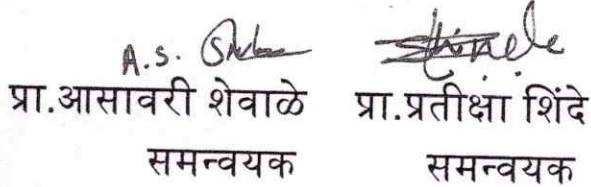 A.S. Shinde
प्रा.आसावरी शेवाळे प्रा.प्रतीक्षा शिंदे
समन्वयक समन्वयक